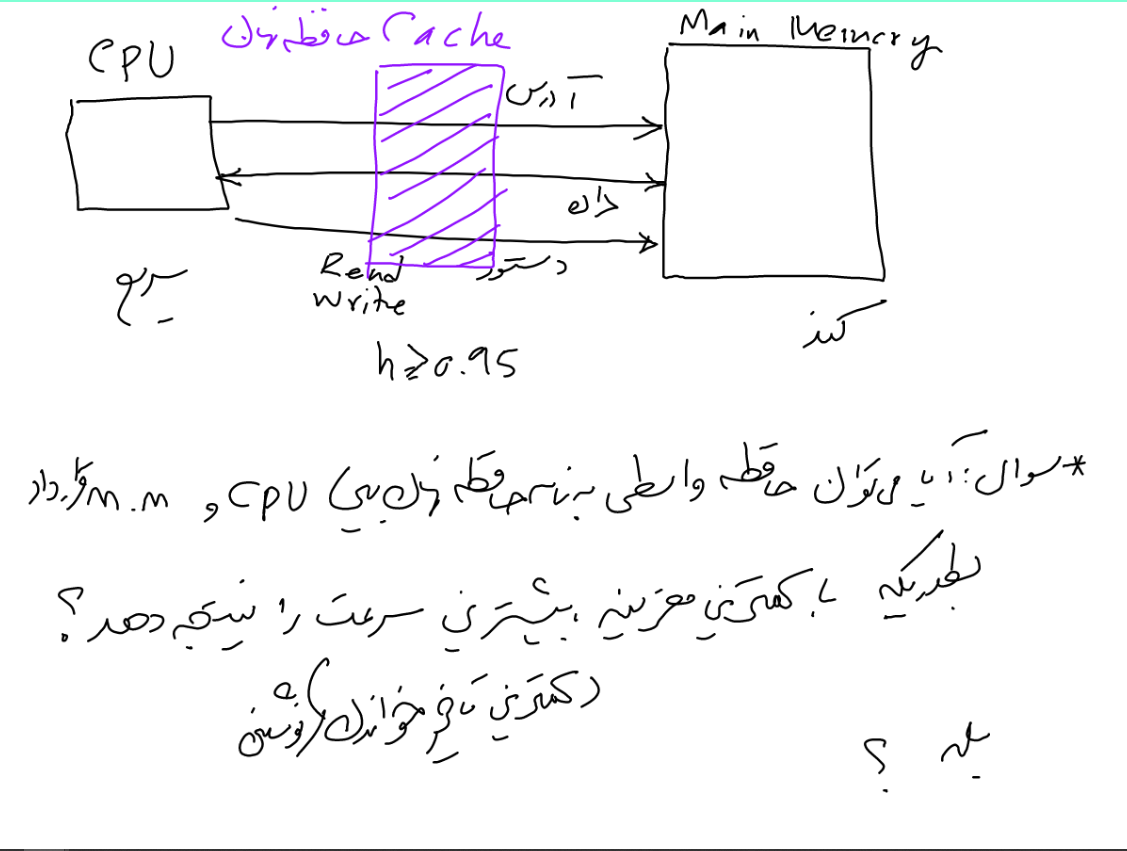 حافظه نهان Cache
Main Memory
CPU
آدرس
داده
Read
Write
دستور
سریع
کند
h ≥ 0.95
* سوال: آیا می‌توان حافظه واسطی به نام حافظه نهان بین CPU و m.m قرار داد
بطوریکه با کمترین هزینه بیشترین سرعت را نتیجه دهد؟
(کمترین تاخیر خواندن / نوشتن)
بله ؟